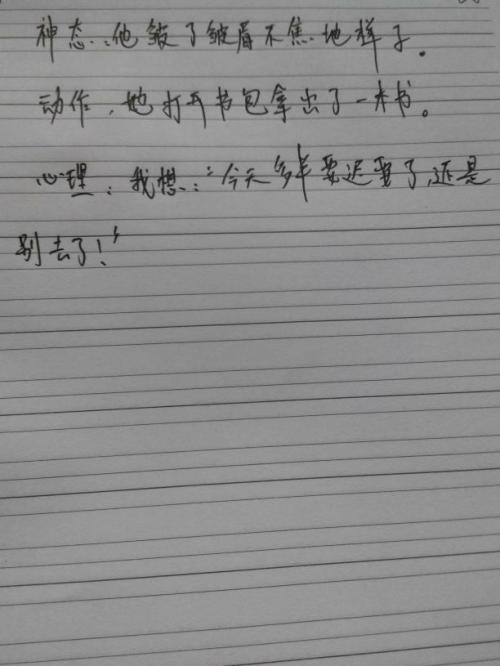 神态:他皱了皱眉不焦地样子。
动作,她打开书包拿出了一本书。
心理:我想:"今天多半要迟要了,还是
别去了!"